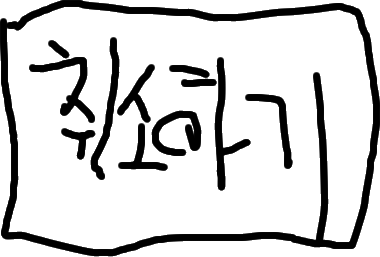 취소하기